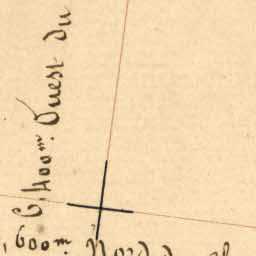 6,400m. Ouest du
,600m. Nord d